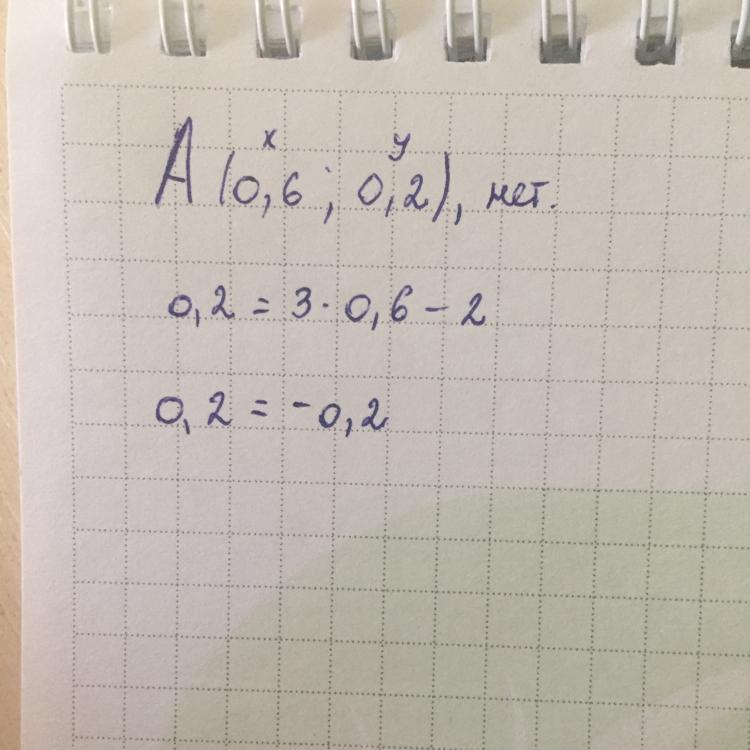 x y
A (0,6 ; 0,2), нет.
0,2 = 3 · 0,6 - 2
0,2 = -0,2